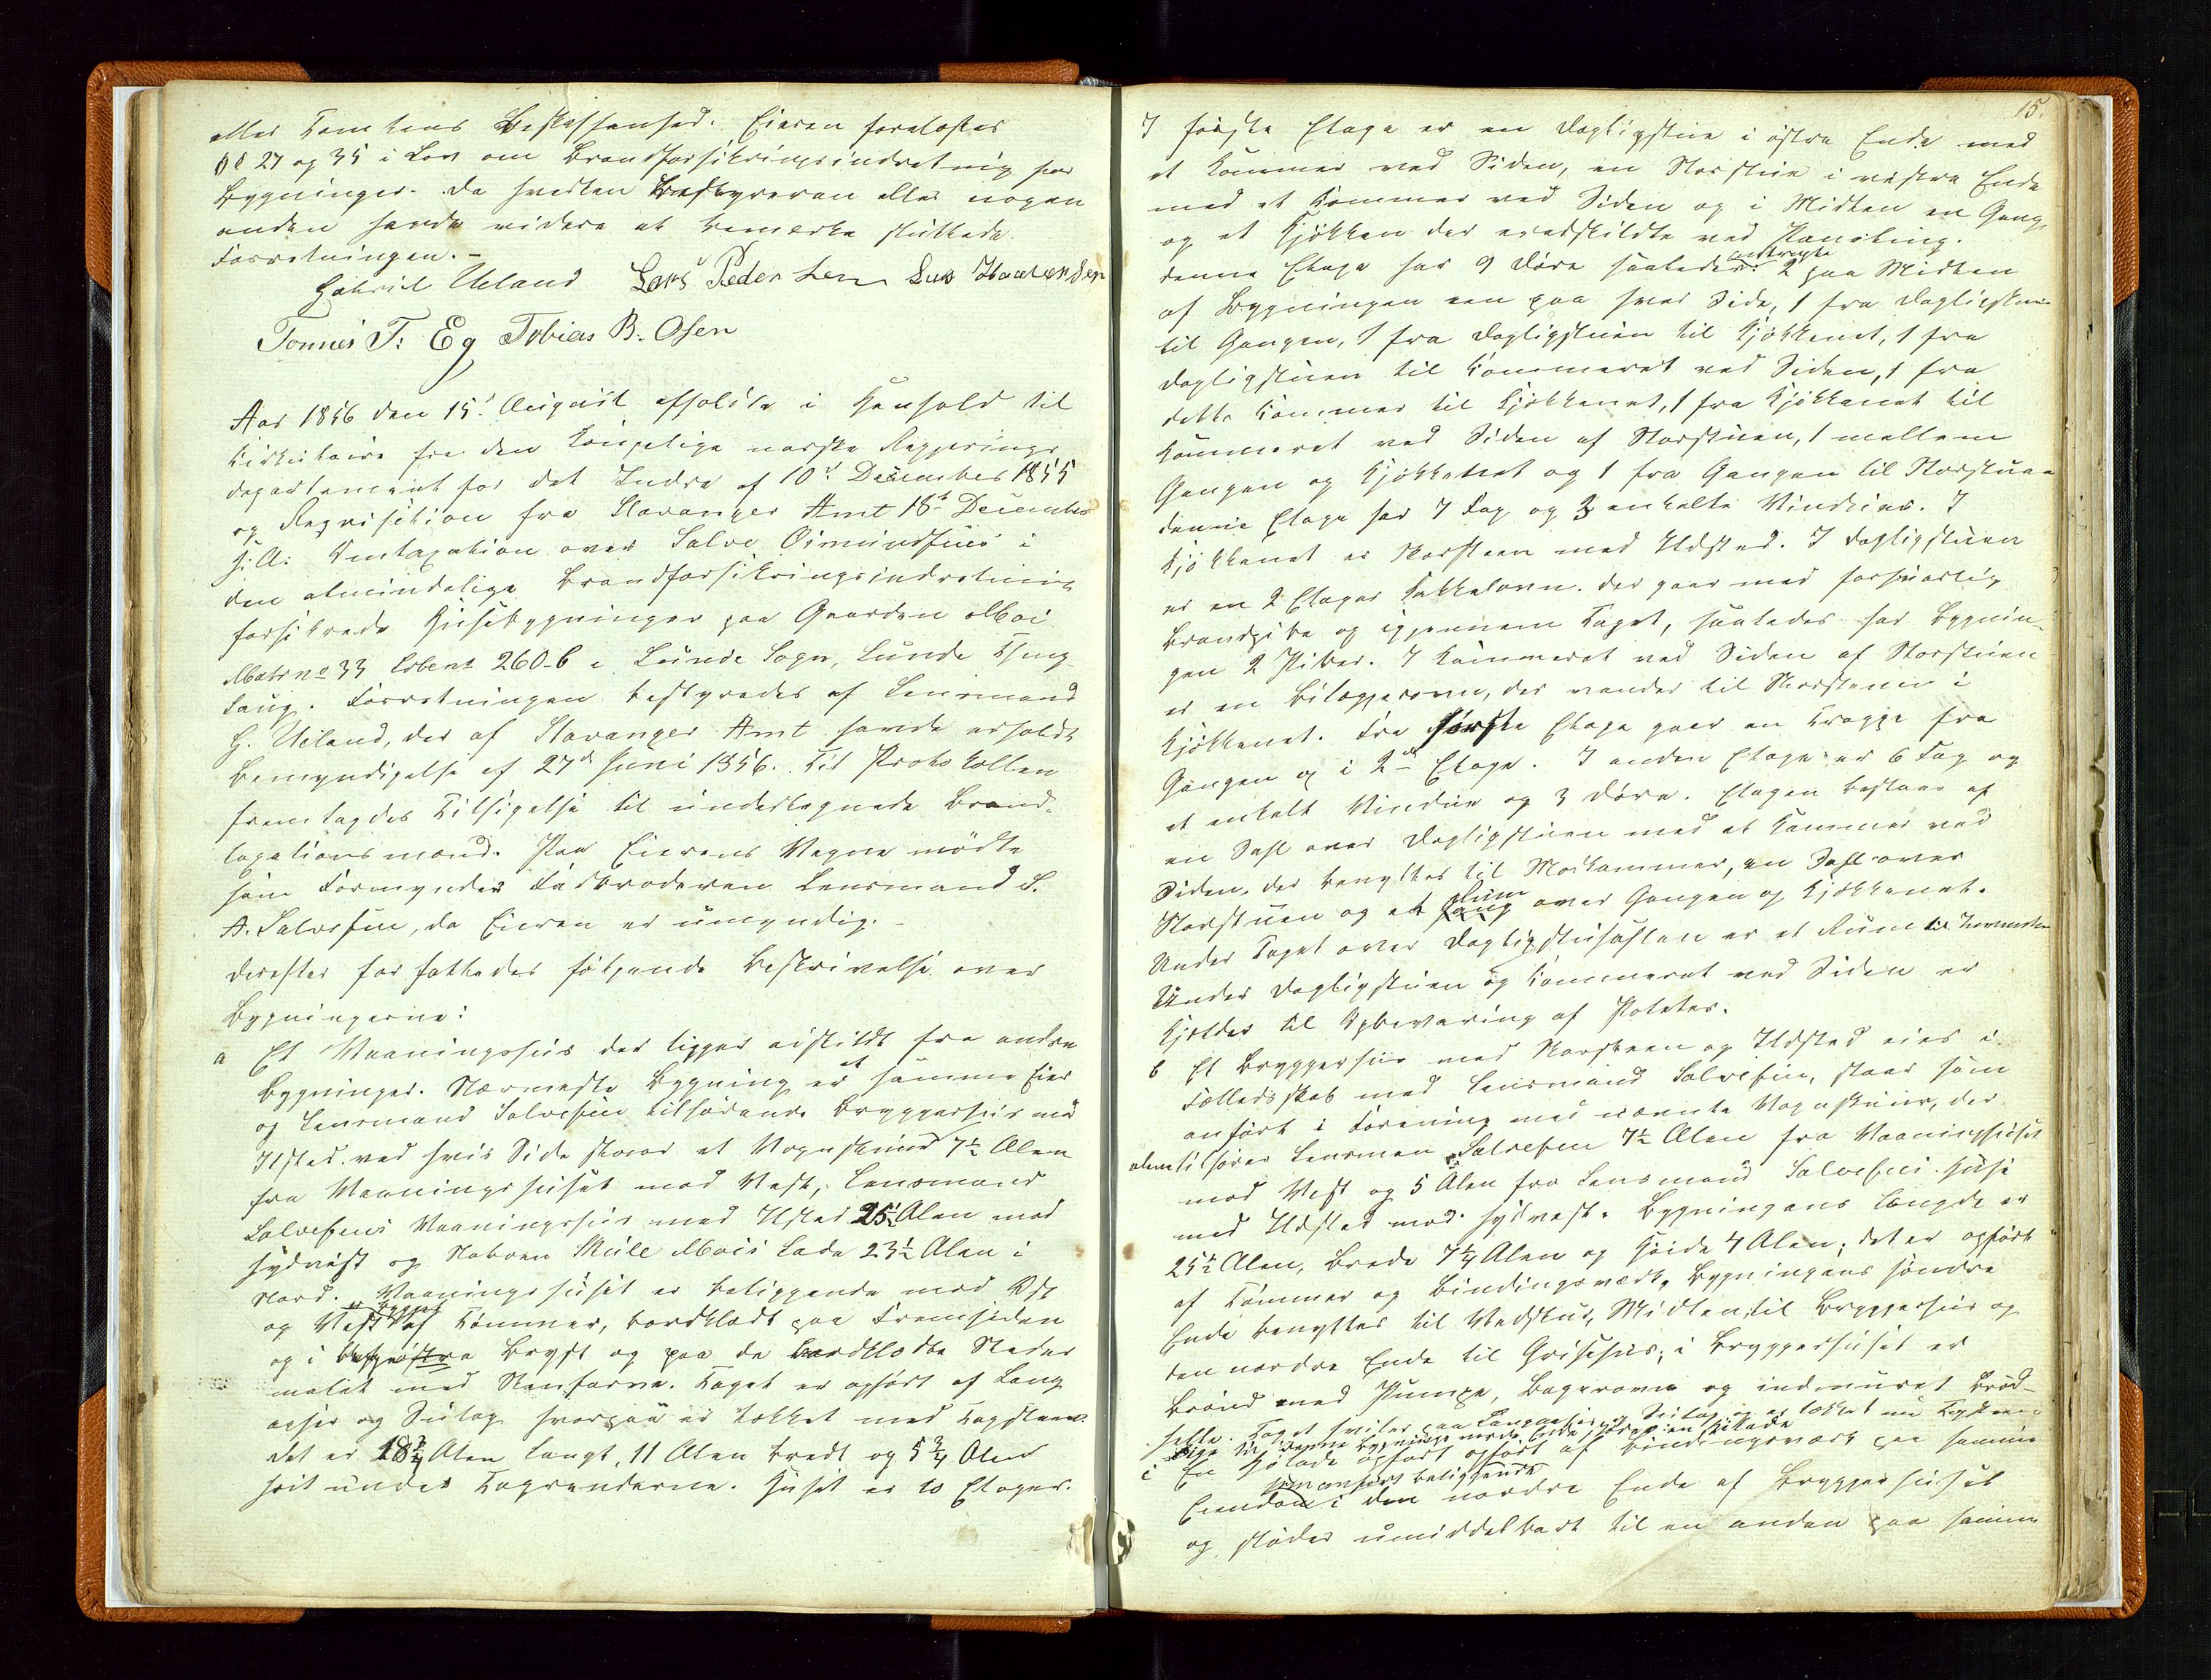 eller Tomtens Beskaffenhed. Eieren forelæstes
§§ 27 og 35 i Lov om Brandforsikringsindretning for
Bygninger. Da hverken Bestyreren eller nogen
anden havde videre at bemærke sluttede
Forretningen. –
Gabriel Ueland Lars Pedersen Lars
Tonnes T: Eg Tobias B. Osen
Aar 1856 den 15. August afholdtes i Henhold til
Cirkulaire fra den kongelige norske Regjerings
departement for det Indre af 10de December 1855
og Reqvisition fra Stavanger Amt 18de December
s: A: Omtaxation over Salve Osmundsens i
den almindelige Brandforsikringsindretning
forsikrede Husebygninger paa Gaarden Moi
Matr no 33 Løbeno 260 b i Lunde Sogn, Lunde Thing-
laug. Forretningen bestyredes af Lensmand
G. Ueland, der af Stavanger Amt havde erholdt
Bemyndigelse af 27de Juni 1856. Til Protokollen
fremlagdes Tilsigelse til undertegnede Brand-
taxationsmænd. Paa Eierens Vegne mødte
som Formynder Fadbroderen Lensmand S.
A. Salvesen, da Eieren er umyndig. –
Derefter forfattedes følgende Beskrivelse over
Bygningerne:
a Et Vaaningshus der ligger adskildt fra andre
Bygninger. Nærmeste Bygning er et samme Eier
og Lensmand Salvesen tilhørende Bryggerhus med
Ilsted ved hvis Side staaer et Vognskuur 7½ Alen
fra Vaaningshuset mod Vest, Lensmand
Salvesens Vaaningshus med Ilsted 25½ Alen mod
Sydvest og Naboen Mule Mois Lade 23½ Alen i
Nord. Vaaningshuset er beliggende mod Øst
er bygget
og Vest af Tømmer, bordklædt paa Fremsiden
og i østre Bryst og paa de bordklædte Steder
malet med Stenfarve. Taget er opført af Lang
aaser og Sutag hvorpaa er tækket med Tagsteen.
Det er 18¾ Alen langt, 11 Alen bredt og 5¾ Alen
høit under Tagrenderne. Huset er to Etager.
15.
I første Etage er en Dagligstue i østre Ende med
et Kammer ved Siden, en Storstue i vestre Ende
med et Kammer ved Siden og i Midten en Gang
og et Kjøkken der er adskildte ved Paneling.
indbygte
Denne Etage har 9 Døre saaledes: 2 paa Midten
af Bygningen een paa hver Side, 1 fra Dagligstuen
til Gangen, 1 fra Dagligstuen til Kjøkkenet, 1 fra
Dagligstuen til Kammeret ved Siden, 1 fra
dette Kammer til Kjøkkenet, 1 fra Kjøkkenet til
Kammeret ved Siden af Storstuen, 1 mellem
Gangen og Kjøkkenet og 1 fra Gangen til Storstuen
denne Etage har 7 Fag og 3 enkelte Vinduer. I
Kjøkkenet er Skorsteen med Ildsted. I Dagligstuen
er en 2 Etages Kakkelovn. der gaar med forsvarlig
Brandpibe og igjennem Taget, saaledes har Bygnin-
gen 2 Piber. I Kammeret ved Siden af Storstuen
er en Bilæggerovn, der vender til Skorstenen i
Kjøkkenet. Fra første Etage gaar en Trappe fra
Gangen op i 2den Etage. I anden Etage er 6 Fag og
et enkelt Vindue og 3 Døre. Etagen bestaar af
en Sahl over Dagligstuen med et Kammer ved
Siden, der benyttes til Madkammer, en Sahl over
Rum
Storstuen og et Gang over Gangen og Kjøkkenet.
Under Taget over Dagligstuesahlen er et Rum
Under Dagligstuen og Kammeret ved Siden er
Kjelder til Opbevaring af Poteter.
b Et Bryggerhus med Skorsteen og Ildsted eies i
Fælledsskab med Lensmand Salvesen, staar som
anført i Forening med nævnte Vognskuur, der
alene tilhører Lensman Salvesen 7½ Alen fra Vaaningshuset
mod Vest og 5 Alen fra Lensmand Salvesens Huse
med Ildsted mod Sydvest. Bygningens Længde er
25½ Alen, Brede 7¼ Alen og Høide 4 Alen; det er opført
af Tømmer og Bindingsværk, Bygningens søndre
Ende benyttes til Vedskur, Midten til Bryggerhus og
den nordre Ende til Grisehus; i Bryggerhuset er
Brønd med Pumpe, Bagerovn og indmuret Brød-
helle. Taget hviler paa Langaaser og Sutag og er tækket med Tagsteen
denne Bygnings nordre Ende
c En Hølade opført opført af Bindingsværk paa samme
som anført beliggende
Eiendom i den nordre Ende af Bryggerhuset
og støder umiddelbart til en anden paa samme